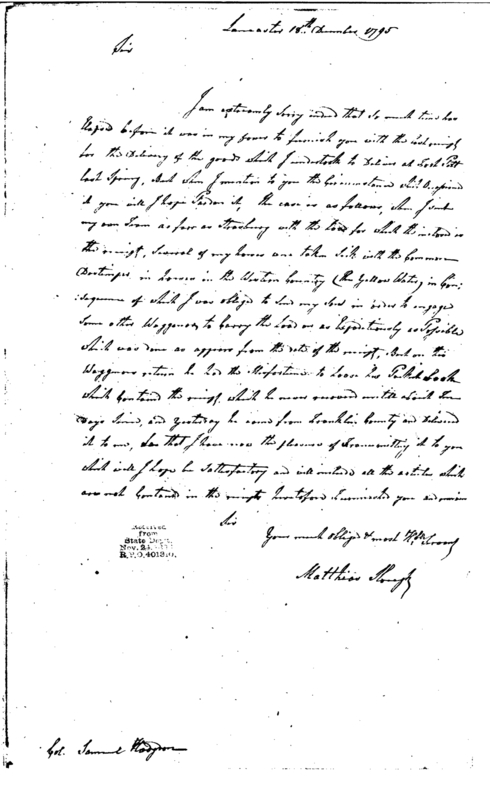 Lancaster 18th December 1795
Sir
I am extremely Sorry indeed that So much time has
Elapsed before it was in my power to furnish you with the receipt
for the Delivery of the goods which I undertook to Deliver at Fort Pitt
last Spring, But when I mention to you the Circumstance which occasioned
it you will I hope Pardon it, the case is as follows, when I sent
my own Team as far as Strasburg with the Load for which the inclosed is
the receipt, Several of my horses was taken Sick with the Common
Distemper in horses in the Western Country (the Yellow Water) in Con-
sequence of which I was obliged to send my Son in order to engage
Some other Waggoner to Carry the Load on as Expeditiously as Possible
which was done as appears from the date of the receipt, But on this
Waggoners return he had the Misfortune to Loose his Pocket Book
which Contained the receipt, which he never received until about Ten
Days Since, and Yesterday he came from Franklin County and Delivered
it to me, So that I have now the pleasure of Transmitting it to you
which will I hope be Satisfactory and will include all the articles which
are not Contained in the receipts heretofore Transmitted you and am
Sir
Your much obliged & most Hble Servt
Matthias Slough
Received
from
State Dept.
Nov. 24
R.&P.O. 401310.
Col. Samuel Hodgdon